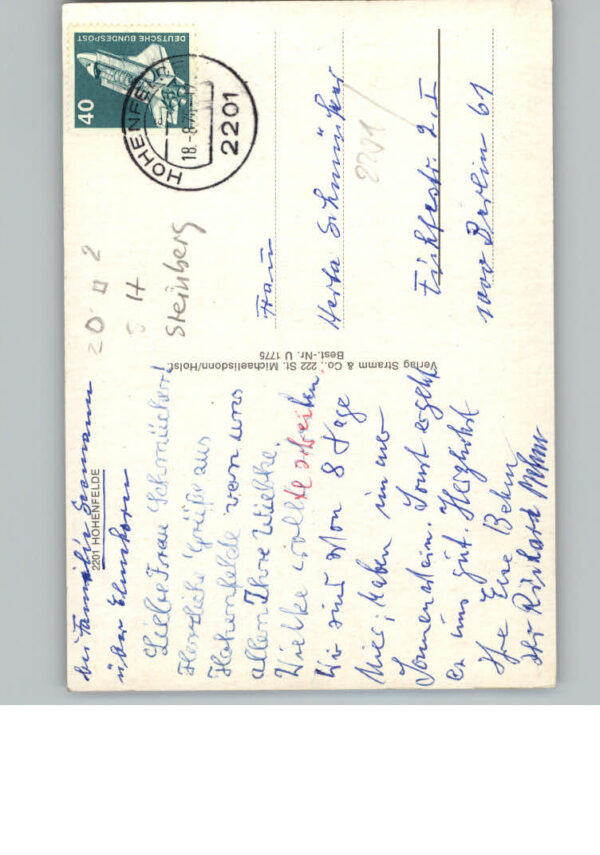 bei Familie Germann
2201 HOHENFELDE
über Elmshorn
Liebe Frau Schmücker!
Herzliche Grüße aus
Hohenfelde von uns
allen Ihre Wiebke.
Wiebke wollte
Wir sind schon 8 Tage
hier, haben immer
Sonnenschein. Sonst ergeht
es uns gut. Herzlichst
Ihre Else Behm
Ihr Richard Behm
Verlag Stramm & Co., 222 St. Michaelisdonn/Holst.
Best.-Nr. U 1775
20
2
H
Steinberg
DEUTSCHE BUNDESPOST
40
HOHENFELDE
18.-8.
2201
Frau
Herta Schmücker
2201
Fichtestr. 2 I
1000 Berlin 61